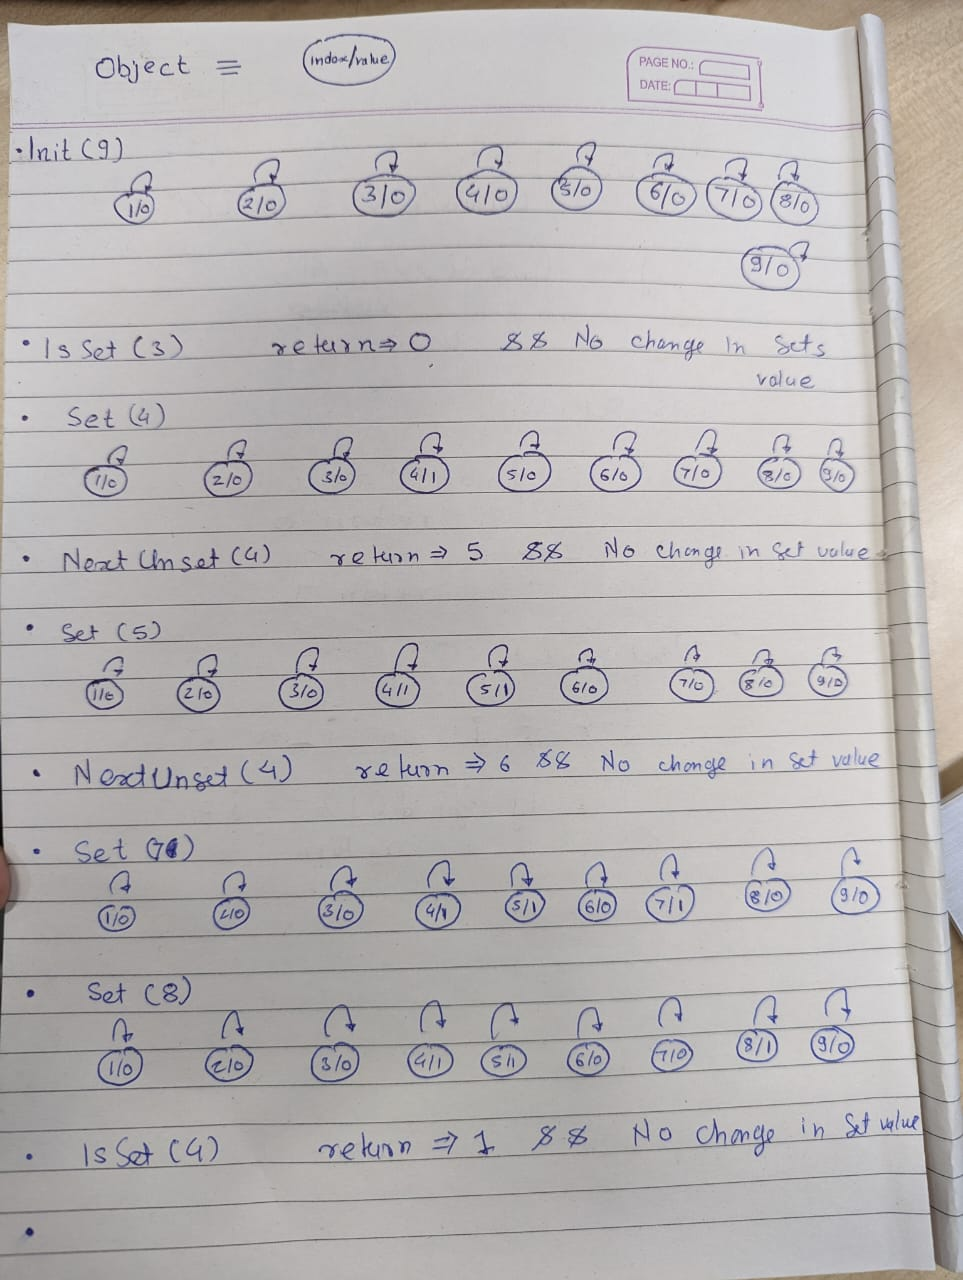 Object = index/value
PAGE NO.:
DATE:
• Init (9)
1/0 2/0 3/0 4/0 5/0 6/0 7/0 8/0
9/0
• Is Set (3) return ⇒ 0 && No change In Sets
value
• Set (4)
1/0 2/0 3/0 4/1 5/0 6/0 7/0 8/0 9/0
• Next Unset (4) return ⇒ 5 && No change in Set value
• Set (5)
1/0 2/0 3/0 4/1 5/1 6/0 7/0 8/0 9/0
• NextUnset (4) return ⇒ 6 && No change in Set value
• Set (7)
1/0 2/0 3/0 4/1 5/1 6/0 7/1 8/0 9/0
• Set (8)
1/0 2/0 3/0 4/1 5/1 6/0 7/0 8/1 9/0
• Is Set (4) return ⇒ 1 && No Change in Set value
•